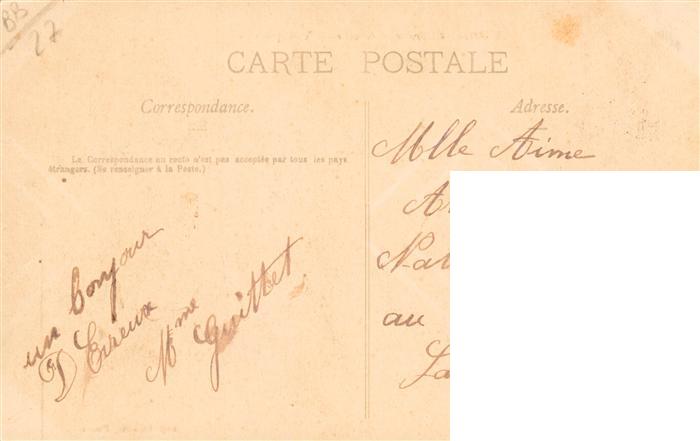 BB
27
CARTE POSTALE
Correspondance.
La Correspondance au recto n'est pas acceptée par tous les pays
étrangers. (Se renseigner à la Poste.)
un bonjour
D'Evreux
Mme Guittet
Adresse.
Mlle Aime
au